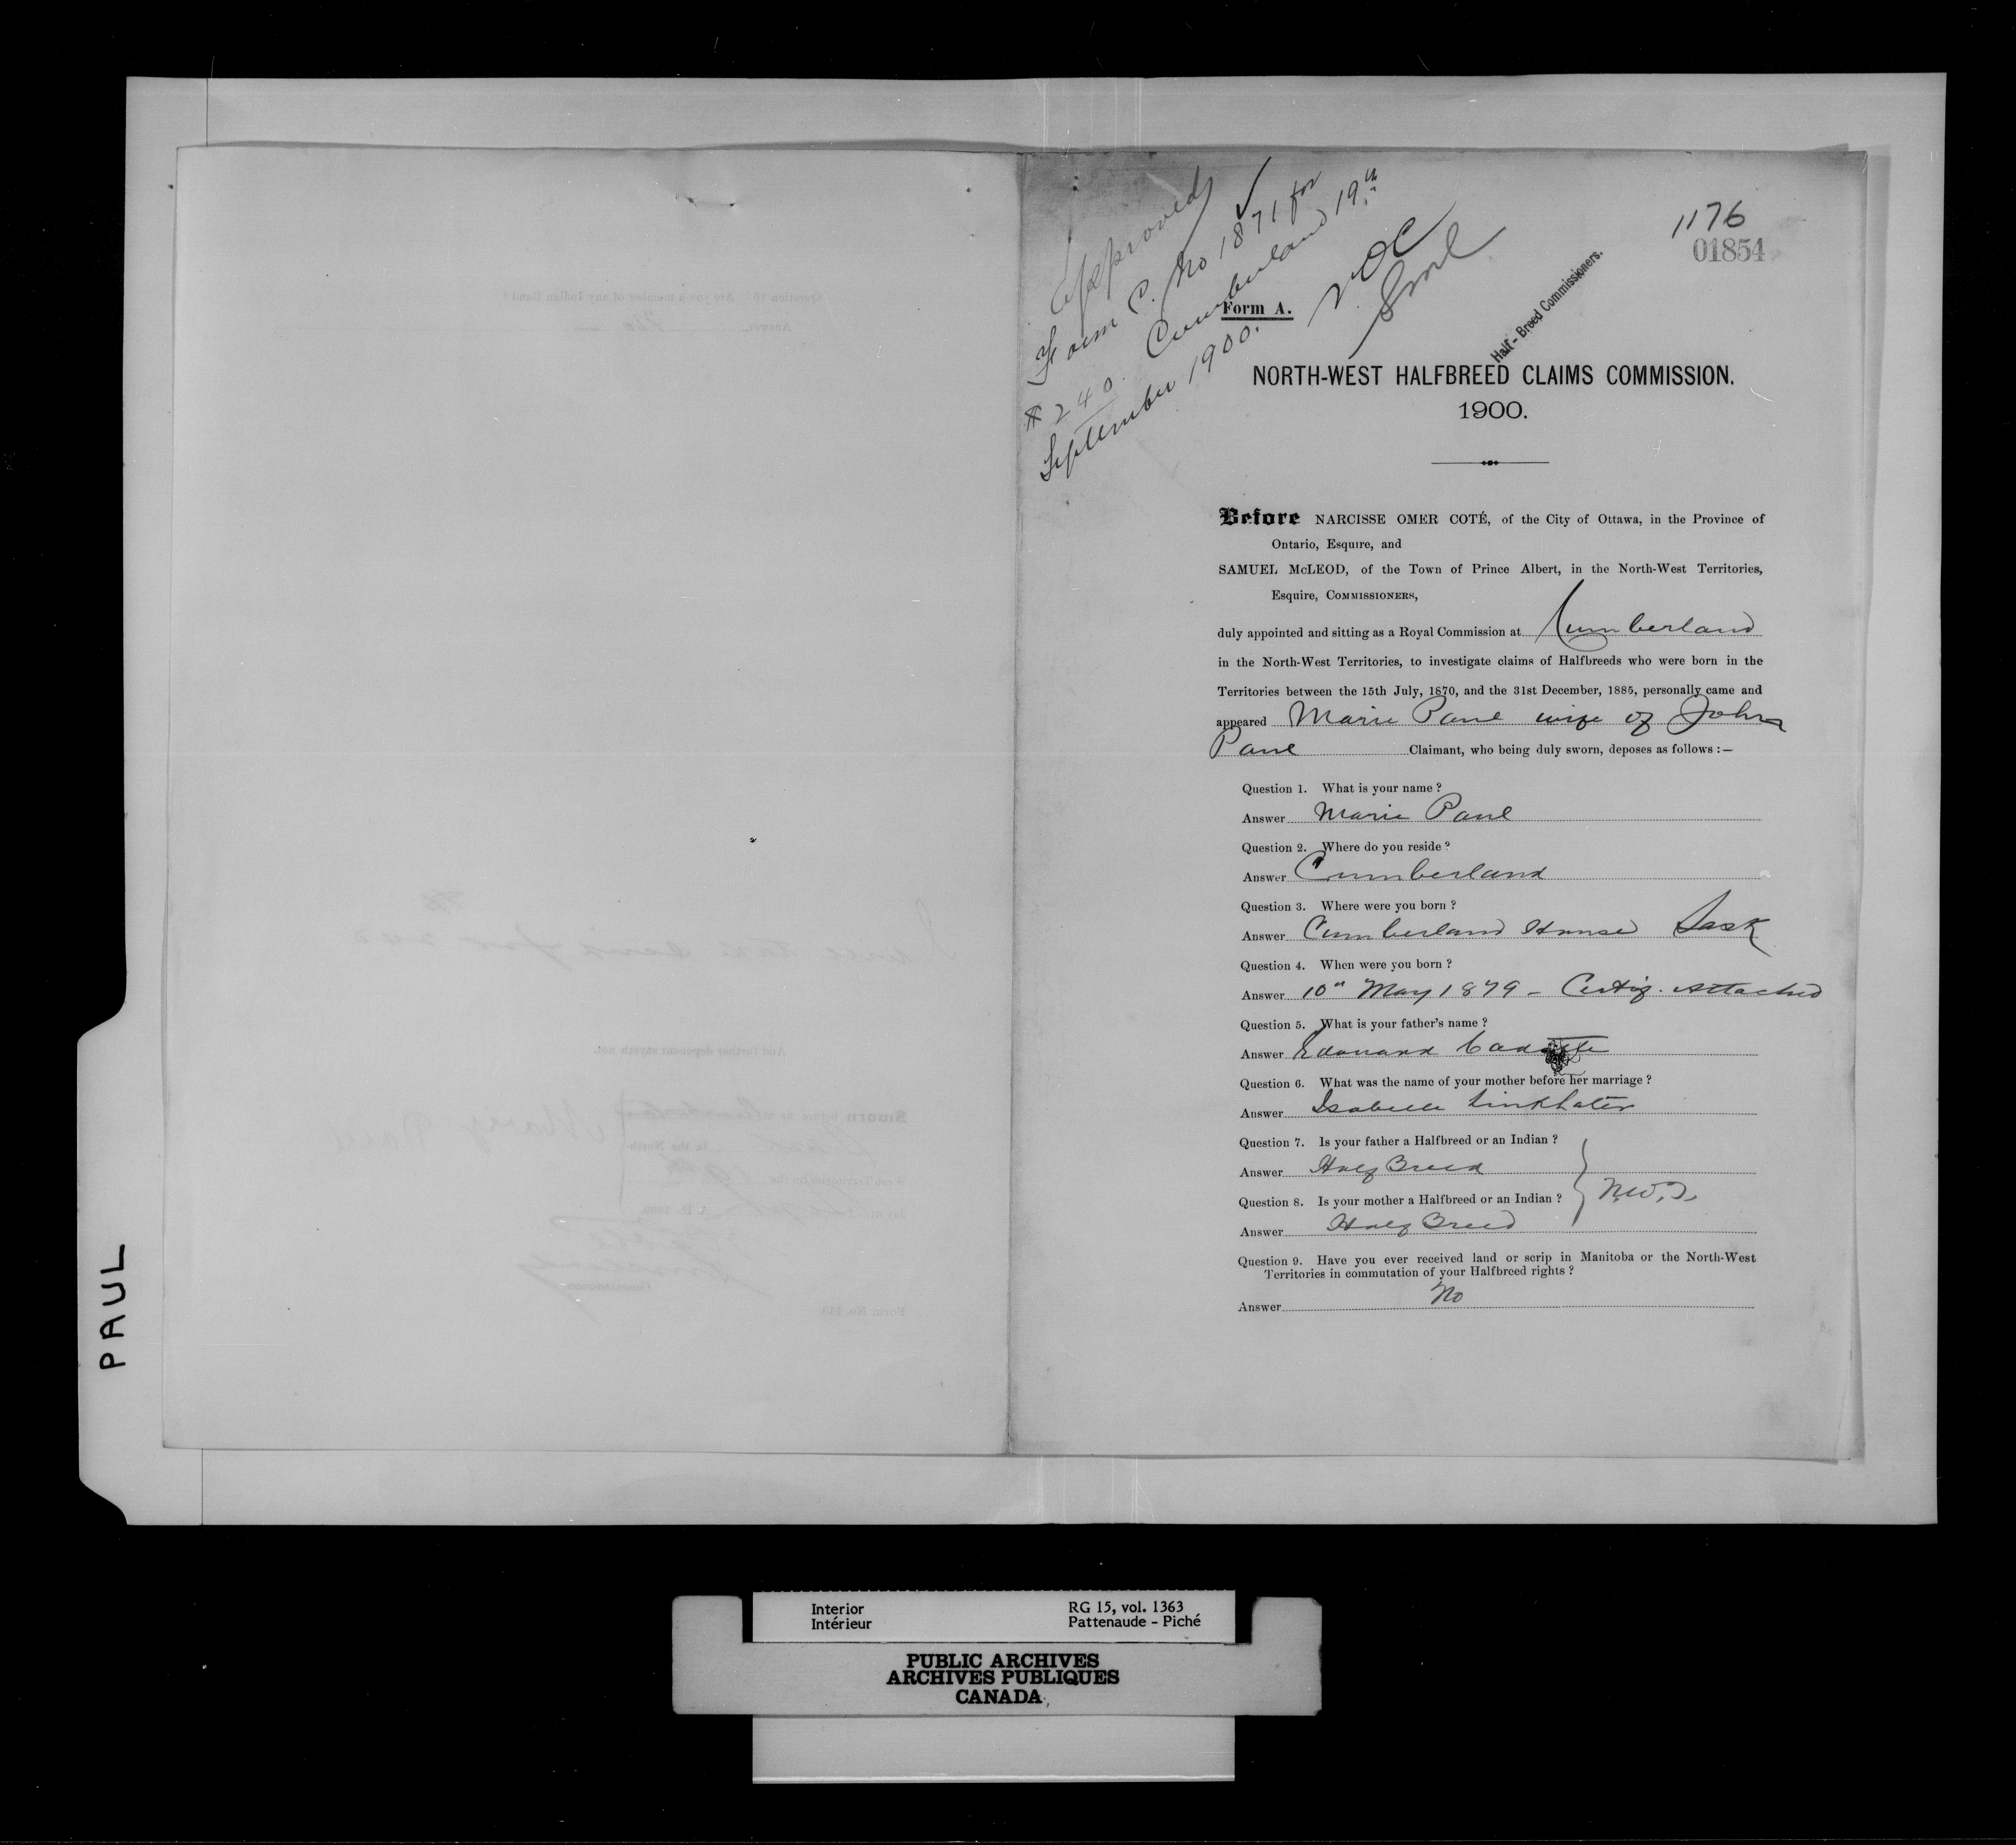 PAUL
Approved
Form C. No 1871 for
$240. Cumberland 19th
September 1900.
NOC
SML
1176
01854
Half-Breed Commissioners.
Form A.
NORTH-WEST HALFBREED CLAIMS COMMISSION.
1900.
Before NARCISSE OMER COTÉ, of the City of Ottawa, in the Province of
Ontario, Esquire, and
SAMUEL McLEOD, of the Town of Prince Albert, in the North-West Territories,
Esquire, COMMISSIONERS,
duly appointed and sitting as a Royal Commission at Cumberland
in the North-West Territories, to investigate claims of Halfbreeds who were born in the
Territories between the 15th July, 1870, and the 31st December, 1885, personally came and
appeared Marie Paul wife of John
Paul Claimant, who being duly sworn, deposes as follows :—
Question 1. What is your name ?
Answer Marie Paul
Question 2. Where do you reside ?
Answer Cumberland
Question 3. Where were you born ?
Answer Cumberland House Sask
Question 4. When were you born ?
Answer 10th May 1879 - Certif. attached
Question 5. What is your father's name ?
Answer Edouard Cadotte
Question 6. What was the name of your mother before her marriage ?
Answer Isabelle Linkhater
Question 7. Is your father a Halfbreed or an Indian ?
Answer Half Breed
Question 8. Is your mother a Halfbreed or an Indian ? N.W.T.
Answer Half Breed
Question 9. Have you ever received land or scrip in Manitoba or the North-West
Territories in commutation of your Halfbreed rights ?
Answer No
Interior RG 15, vol. 1363
Intérieur Pattenaude - Piché
PUBLIC ARCHIVES
ARCHIVES PUBLIQUES
CANADA